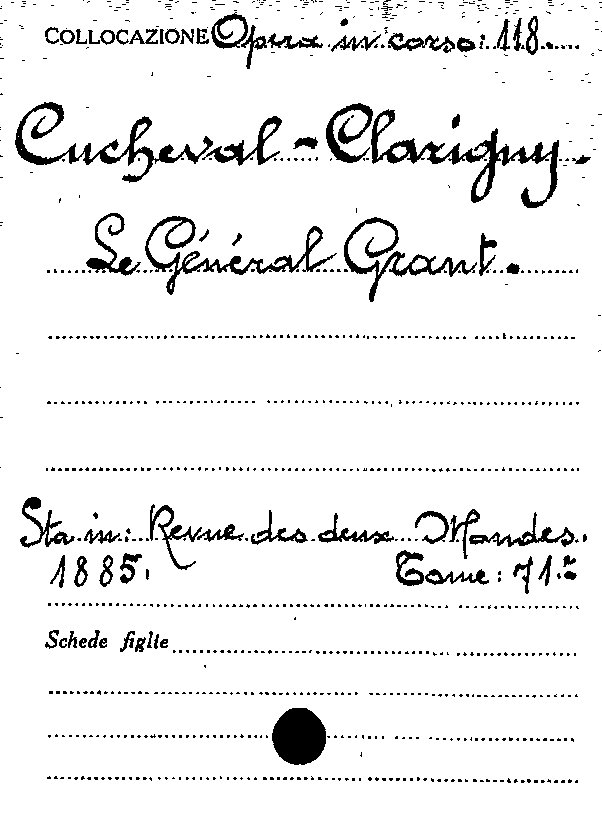 COLLOCAZIONE Opera in corso: 118.
Cucheval-Clarigny.
Le Général Grant.
Sta in: Revue des deux Mondes.
1885. Tome: 71.º
Schede figlie